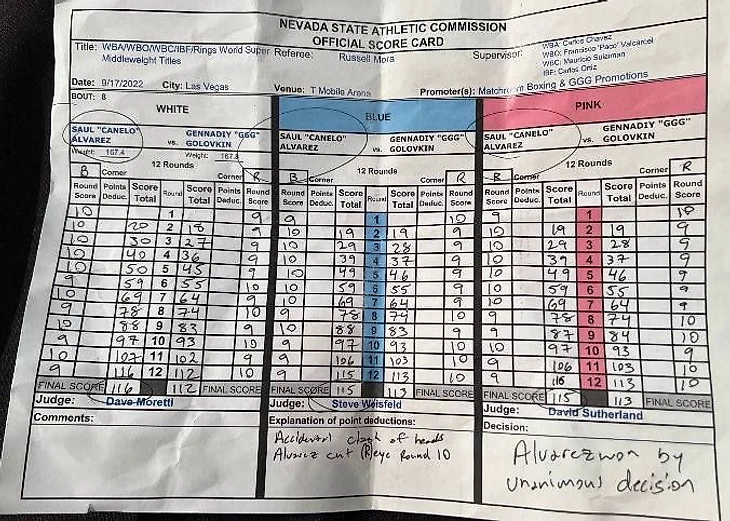 NEVADA STATE ATHLETIC COMMISSION
OFFICIAL SCORE CARD
Title: WBA/WBO/WBC/IBF/Rings World Super Middleweight Titles
Referee: Russell Mora
Supervisor: WBA: Carlos Chavez
WBO: Francisco "Paco" Valcarcel
WBC: Mauricio Sulaiman
IBF: Carlos Ortiz
Date: 9/17/2022 City: Las Vegas Venue: T Mobile Arena Promoter(s): Matchroom Boxing & GGG Promotions
BOUT: 8
WHITE BLUE PINK
SAUL "CANELO" ALVAREZ vs. GENNADIY "GGG" GOLOVKIN SAUL "CANELO" ALVAREZ vs. GENNADIY "GGG" GOLOVKIN SAUL "CANELO" ALVAREZ vs. GENNADIY "GGG" GOLOVKIN
Weight: 167.4 Weight: 167.8
12 Rounds 12 Rounds 12 Rounds
B Corner Corner R B Corner Corner R B Corner Corner R
Round Score Points Deduc. Score Total Round Score Total Points Deduc. Round Score Round Score Points Deduc. Score Total Round Score Total Points Deduc. Round Score Round Score Points Deduc. Score Total Round Score Total Points Deduc. Round Score
10 1 9 9 1 10 9 1 10
10 20 2 18 9 10 19 2 19 9 10 19 2 19 9
10 30 3 27 9 10 29 3 28 9 10 29 3 28 9
10 40 4 36 9 10 39 4 37 9 10 39 4 37 9
10 50 5 45 9 10 49 5 46 9 10 49 5 46 9
9 59 6 55 10 10 59 6 55 9 10 59 6 55 9
10 69 7 64 9 10 69 7 64 9 10 69 7 64 9
9 78 8 74 10 9 78 8 74 10 9 78 8 74 10
10 88 9 83 9 10 88 9 83 9 9 87 9 84 10
9 97 10 93 10 9 97 10 93 10 10 97 10 93 9
10 107 11 102 9 9 106 11 103 10 9 106 11 103 10
9 116 12 112 10 9 115 12 113 10 9 116 12 113 10
FINAL SCORE 116 112 FINAL SCORE FINAL SCORE 115 113 FINAL SCORE FINAL SCORE 115 113 FINAL SCORE
Judge: Dave Moretti Judge: Steve Weisfeld Judge: David Sutherland
Comments: Explanation of point deductions: Decision:
Accidental clash of heads
Alvarez cut (R) eye Round 10
Alvarez won by
unanimous decision